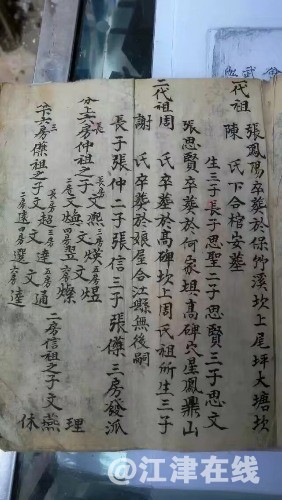 一代祖 張鳳陽卒葬於保竹溪坎上尾坪大塘坎
陳氏下合棺安墓
生三子長子思聖二子思賢三子思文
張思賢卒葬於何家坦高碑穴星鳳鼎山
二代祖 周氏卒葬於高碑坎上周氏祖所生三子
謝氏卒葬於娘屋合江縣無後嗣
長子張仲二子張信三子張傑三房發派
分上六房仲祖之子
長文熙 三房文燁 五房文煜
二房文煥 四房文翌 六房文燦
二房信祖之子文理 文燕 文休
三房傑祖之子
長房文超 三房文達 五房文通
二房文遠 四房文選 六房文達
@江津在线